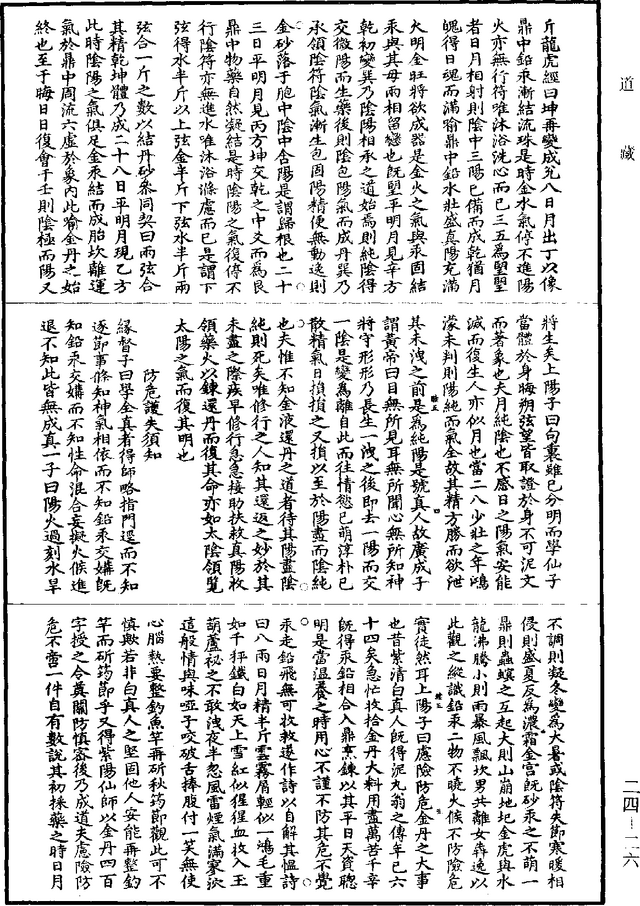 道藏
斤龍虎經曰坤再變成兌八日月出丁以像
鼎中鉛汞漸結流珠是時金水氣停不進陽
火亦無行符唯沐浴洗心而已三五為望望
者日月相射則陰中三陽已備而成乾猶月
魄得日魂而滿喻鼎中鉛水壯盛真陽充滿
火明金旺將欲成器是金火之氣與汞固結
汞與其母兩相留戀也既望平明月見辛方
乾初變巽乃陰陽相承之道始焉則純陰得
交微陽而生藥後則陰包陽氣而成丹巽乃
承領陰符陰氣漸生包固陽精便無動逸則
金砂落于胞中陰中含陽是謂歸根也二十
三日平明月見丙方坤交乾之中爻而為艮
鼎中物藥自然凝結是時陰陽之氣復停不
行陰符亦無進水唯沐浴滌慮而已是謂下
弦得水半斤以上弦金半斤下弦水半斤兩
弦合一斤之數以結丹砂參同契曰兩弦合
其精乾坤體乃成二十八日平明月現乙方
此時陰陽之氣俱足金汞結而成胎坎離運
氣於鼎中周流六虛於象內此喻金丹之始
終也至于晦日日復會于壬則陰極而陽又
將生矣上陽子曰句裏雖已分明而學仙子
當體於身晦朔弦望皆取證於身不可泥文
而著象也夫月純陰也不感日之陽氣安能
滅而復生人亦似月也當二八少壯之年鴻
濛未判則陽純而氣全故其精方勝而欲泄
其未洩之前是為純陽是號真人故廣成子
謂黃帝曰目無所見耳無所聞心無所知神
將守形形乃長生一洩之後即去一陽而交
一陰是變為離自此而往情慾已萌淳朴已
散精氣日損損之又損以至於陽盡而陰純
也夫惟不知金液還丹之道者待其陽盡陰
純則死矣唯修行之人知其還返之妙於其
未盡之際疾早修行急急接助扶救真陽收
領藥火以鍊還丹而復其命亦如太陰領覽
太陽之氣而復其明也
防危護失須知
緣督子曰學全真者得師略指門逕而不知
逐節事條知神氣相依而不知鉛汞交媾既
知鉛汞交媾而不知性命混合妄擬火候進
退不知此皆無成真一子曰陽火過刻水旱
不調則凝冬變為大暑或陰符失節寒暖相
侵則盛夏反為濃霜金宮既砂汞之不萌一
鼎則蟲螟之互起大則山崩地圮金虎與水
龍沸騰小則雨暴風飄坎男共離女犇逸以
此觀之縱識鉛汞二物不曉火候不防險危
實徒然耳上陽子曰慮險防危金丹之大事
也昔紫清白真人既得泥丸翁之傳年已六
十四矣急忙收拾金丹大料用盡萬苦千辛
既得汞鉛相合入鼎烹鍊以其平日天資聰
明是當溫養之時用心不謹不防其危不覺
汞走鉛飛無可收救遂作詩以自解其慍詩
曰八兩日月精半斤雲霧屑輕似一鴻毛重
如千秤鐵白如天上雪紅似猩猩血收入玉
葫蘆祕之不敢洩夜半忽風雷煙氣滿寥泬
這般情與味啞子咬破舌捧腹付一笑無使
心腦熱要整釣魚竿再斫秋筠節觀此可不
慎歟若非白真人之堅固他人安能再整釣
竿而斫筠節乎又得紫陽仙師以金丹四百
字授之令冀關防慎密後乃成道夫慮險防
危不啻一件自有數說其初採藥之時日月
二四—二六